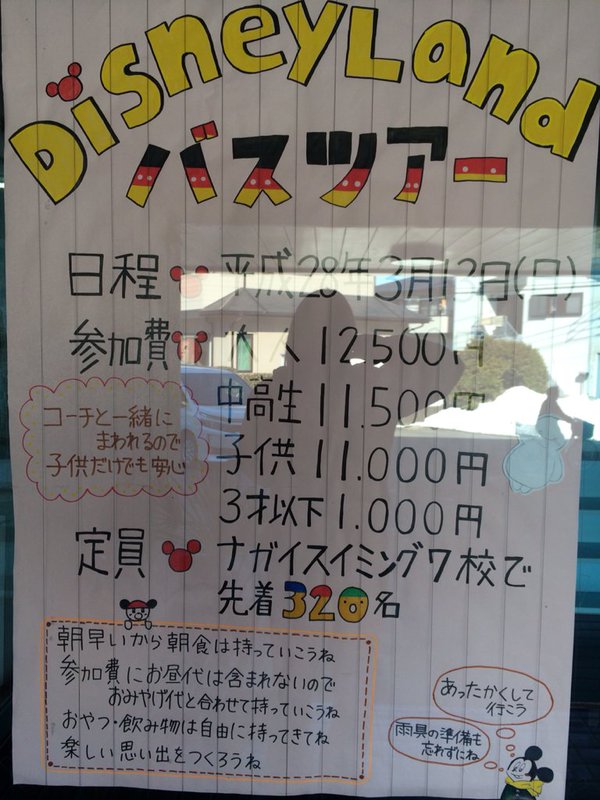 DisneyLand
バスツアー
日程 平成28年3月13日(日)
参加費 大人 12,500円
中高生 11,500円
子供 11,000円
3才以下 1,000円
コーチと一緒に
まわれるので
子供だけでも安心
定員 ナガイスイミング7校で
先着320名
朝早いから朝食は持っていこうね
参加費にお昼代は含まれないので
おみやげ代と合わせて持っていこうね
おやつ・飲み物は自由に持ってきてね
楽しい思い出をつくろうね
あったかくして
行こう
雨具の準備も
忘れずにね